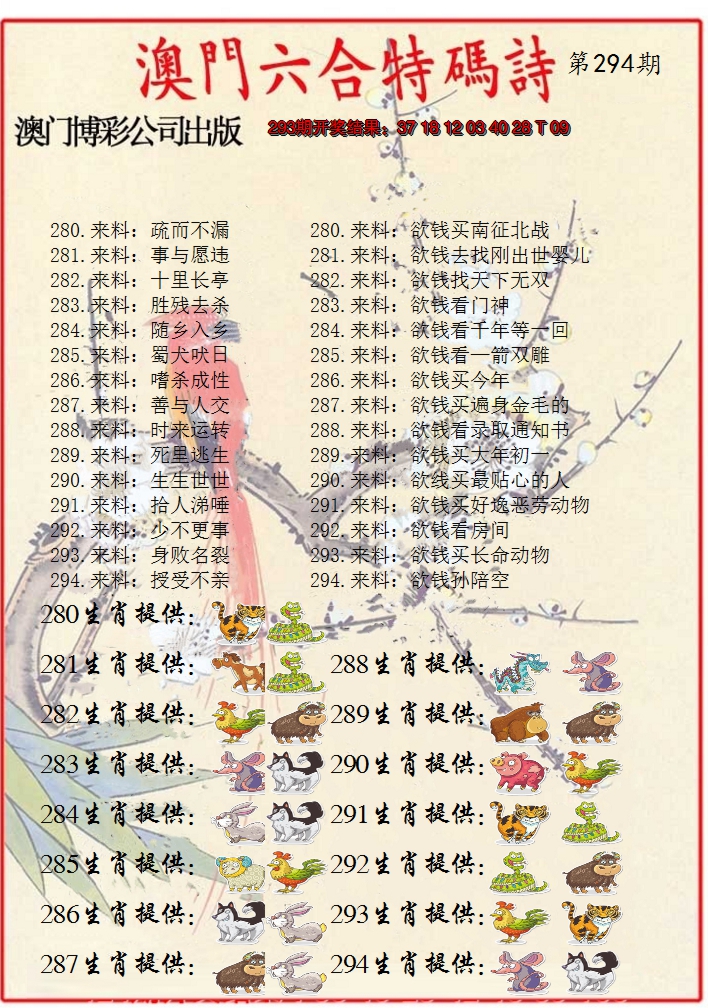 澳門六合特碼詩 第294期
澳门博彩公司出版 293期开奖结果：37 18 12 03 40 28 T 09
280.来料：疏而不漏 280.来料：欲钱买南征北战
281.来料：事与愿违 281.来料：欲钱去找刚出世婴儿
282.来料：十里长亭 282.来料：欲钱找天下无双
283.来料：胜残去杀 283.来料：欲钱看门神
284.来料：随乡入乡 284.来料：欲钱看千年等一回
285.来料：蜀犬吠日 285.来料：欲钱看一箭双雕
286.来料：嗜杀成性 286.来料：欲钱买今年
287.来料：善与人交 287.来料：欲钱买遍身金毛的
288.来料：时来运转 288.来料：欲钱看录取通知书
289.来料：死里逃生 289.来料：欲钱买大年初一
290.来料：生生世世 290.来料：欲线买最贴心的人
291.来料：拾人涕唾 291.来料：欲钱买好逸恶劳动物
292.来料：少不更事 292.来料：欲钱看房间
293.来料：身败名裂 293.来料：欲钱买长命动物
294.来料：授受不亲 294.来料：欲钱孙陪空
280生肖提供：
281生肖提供： 288生肖提供：
282生肖提供： 289生肖提供：
283生肖提供： 290生肖提供：
284生肖提供： 291生肖提供：
285生肖提供： 292生肖提供：
286生肖提供： 293生肖提供：
287生肖提供： 294生肖提供：